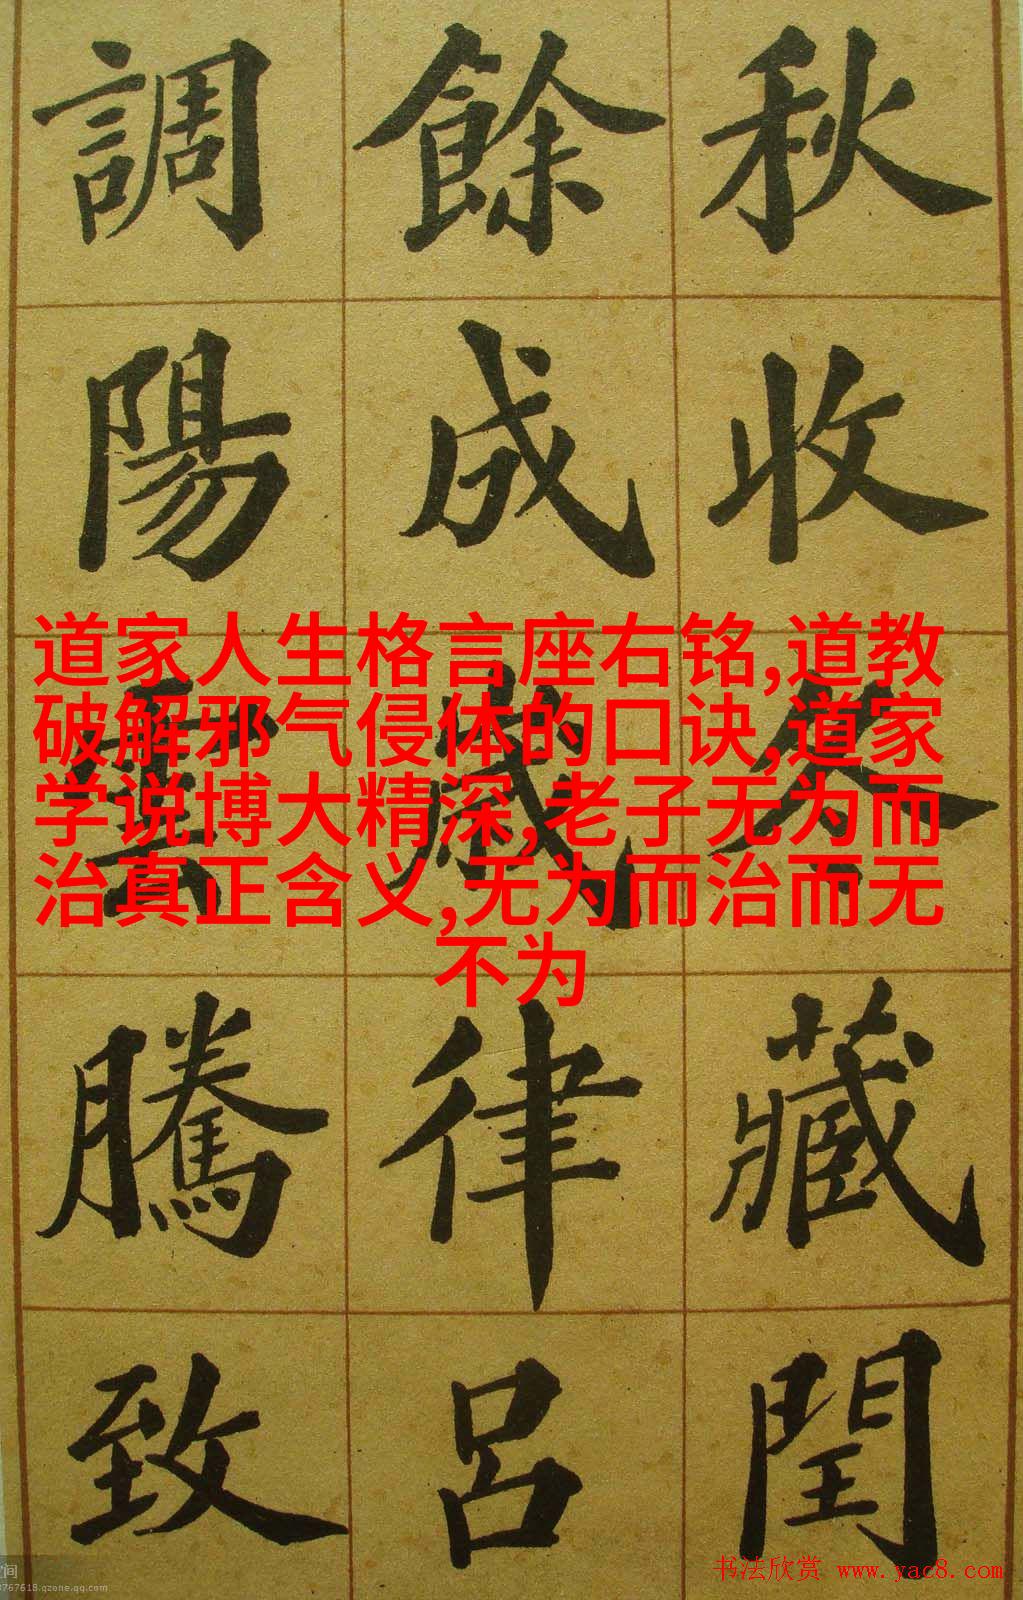 秋收冬藏閏
餘成歲律呂
調陽雲騰致
道家人生格言座右铭,道教
破解邪气侵体的口诀,道家
学说博大精深,老子无为而
治真正含义,无为而治而无
不为
书法欣赏 www.yac8.com
间
767618.qzone.qq.com